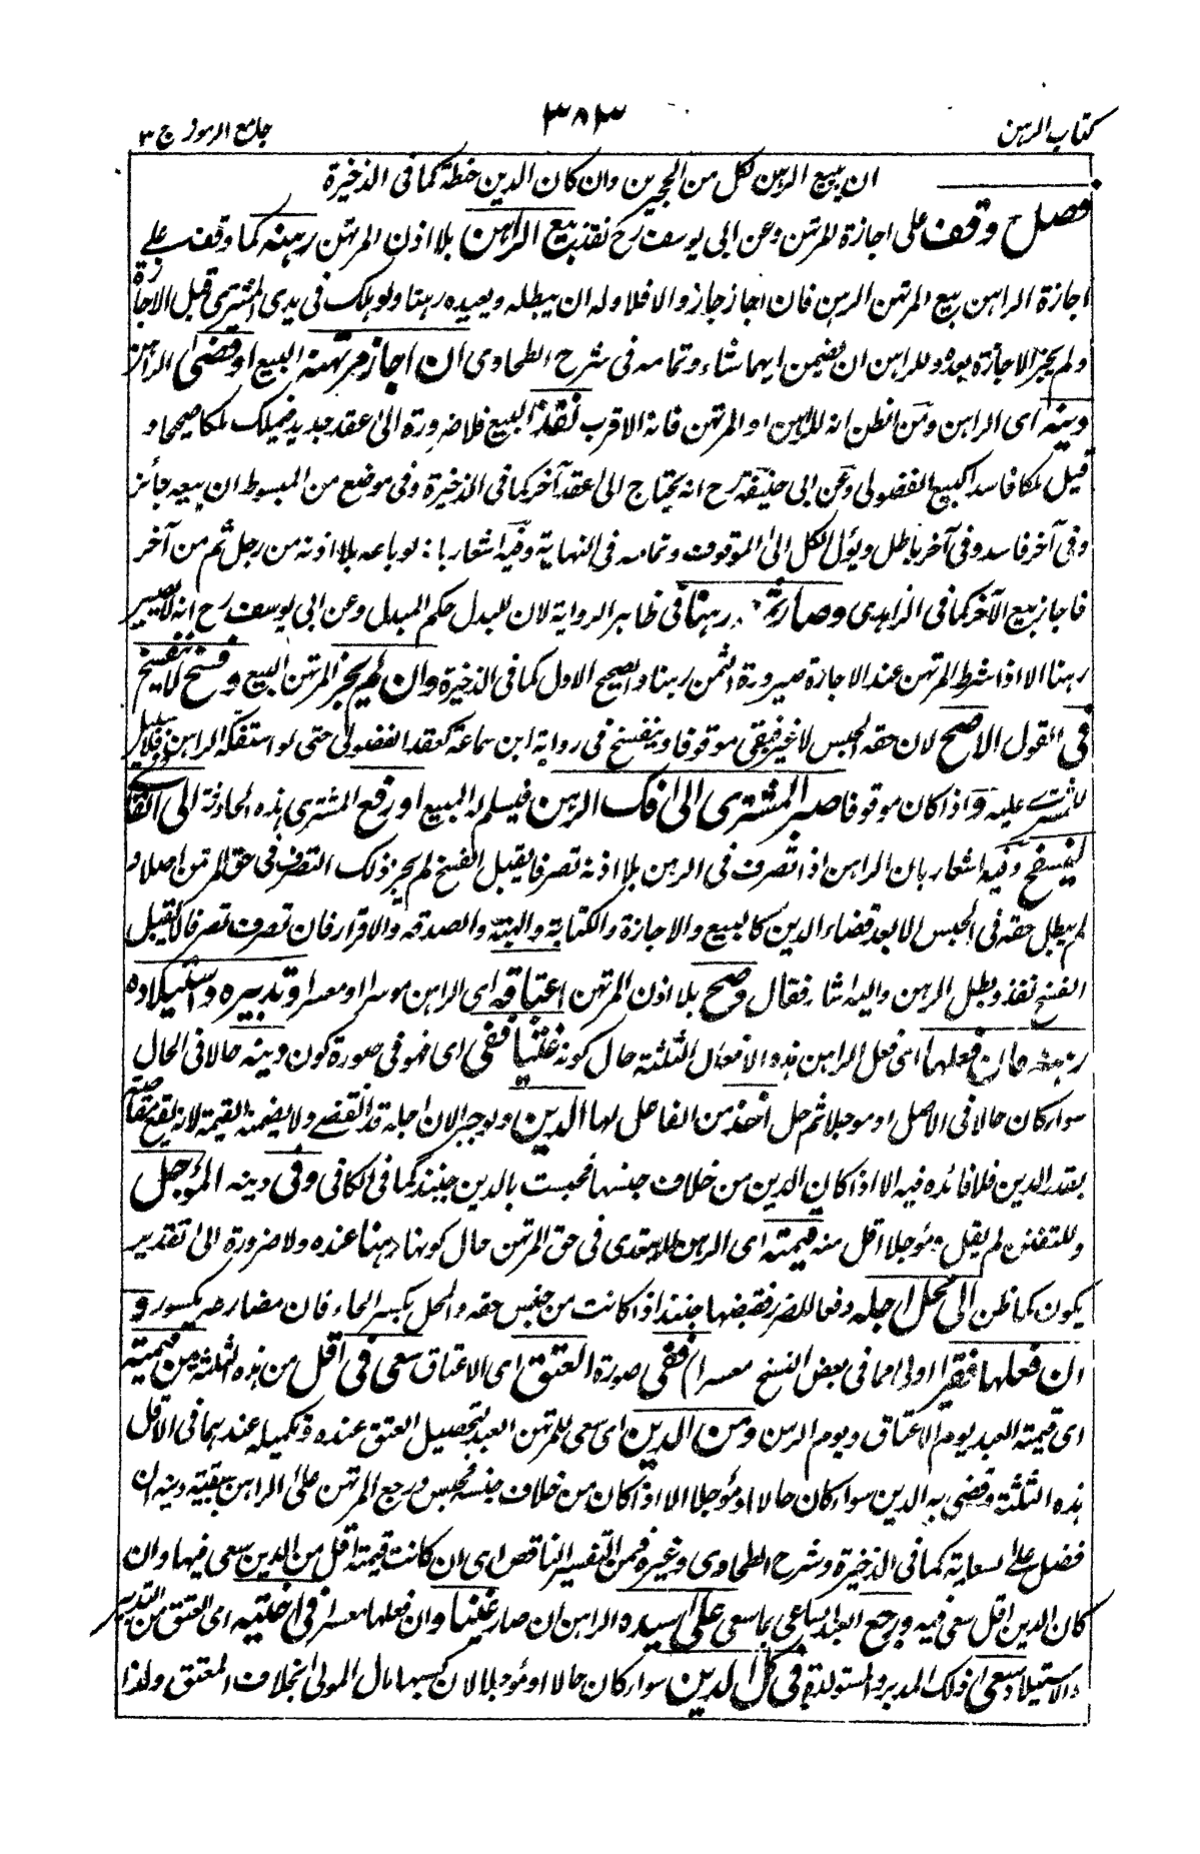 كتاب الرهن
٣٨٣
جامع الرموز ج ٣
ان يبيع الرهن لكل من المجيزين وان كان الدين حنطة كما فى الذخيرة
فصل وقف على اجازة المرتهن وعن ابى يوسف رح نفذ بيع الراهن بلا اذن المرتهن رهنه كما وقف على
اجازة الراهن بيع المرتهن الرهن فان اجاز جاز والا فلا وله ان يبطله ويعيده رهنا ولو هلك فى يدى المشترى قبل الاجازة
ولم يجز الاجازة بعده وللراهن ان يضمن ايهما شاء وتمامه فى شرح الطحاوى ان اجاز مرتهنه البيع او قضى الراهن
دينه اى الراهن ومن الظن انه للراهن او المرتهن فانه الاقرب نفذ البيع فلا ضرورة الى عقد جديد فيملك ملكا صحيحا و
قيل ملكا فاسدا كبيع الفضولى وعن ابى حنيفة رح انه يحتاج الى عقد آخر كما فى الذخيرة وفى موضع من المبسوط ان بيعه جائز
وفى آخر فاسد وفى آخر باطل ويؤل الكل الى الموقوف وتمامه فى النهاية وفيه اشعار بانه لو باعه بلا اذنه من رجل ثم من آخر
فاجاز بيع الآخر كما فى الزاهدى وصار ثمنه رهنا فى ظاهر الرواية لان للبدل حكم المبدل وعن ابى يوسف رح انه لا يصير
رهنا الا اذا شرط المرتهن عند الاجازة صيرورة الثمن رهنا والصحيح الاول كما فى الذخيرة وان لم يجز المرتهن البيع وفسخ لا ينفسخ
فى القول الاصح لان حقه الحبس لا غير فبقى موقوفا وينفسخ فى رواية ابن سماعة كعقد الفضولى حتى لو استفكه الراهن فلا سبيل
للمشترى عليه واذا كان موقوفا صبر المشترى الى فك الرهن فيسلم له المبيع او رفع المشترى هذه الحادثة الى القاضى
ليفسخ وفيه اشعار بان الراهن اذا تصرف فى الرهن بلا اذنه تصرفا يقبل الفسخ لم يجز ذلك التصرف فى حق المرتهن اصلا و
لم يبطل حقه فى الحبس الا بعد قضاء الدين كالبيع والاجازة والكتابة والهبة والصدقة والاقرار فان تصرف تصرفا لا يقبل
الفسخ نفذ وبطل الرهن واليه اشار فقال وصح بلا اذن المرتهن اعتاقه اى الراهن موسرا او معسرا وتدبيره واستيلاده
رهنه فان فعلها اى فعل الراهن هذه الافعال الثلثة حال كونه غنيا ففى اى فهو فى صورة كون دينه حالا فى الحال
سواء كان حالا فى الاصل او مؤجلا ثم حل اخذ من الفاعل لها الدين اذ يوجر لان اجله قد انقضى ولا يضمنه القيمة لانه يقع مقاصة
بقدر الدين فلا فائدة فيه الا اذا كان الدين من خلاف جنسها فحبست بالدين حينئذ كما فى الكافى وفى دينه المؤجل
وللتفنن لم يقل مؤجلا اقل منه قيمته اى الرهن للتعدى فى حق المرتهن حال كونها رهنا عنده ولا ضرورة الى تقدير
يكون كما ظن الى محل اجله دفعا للضرر فقبضها حينئذ اذا كانت من جنس حقه والمحل بكسر الحاء فان مضارعه بكسور و
ان فعلها فقيرا اولى مما فى بعض النسخ معسرا ففى صورة العتق اى الاعتاق سعى فى اقل من هذه الثلثة من قيمته
اى قيمة العبد يوم الاعتاق ويوم الرهن ومن الدين اى سعى للمرتهن العبد لتحصيل العتق عنده وتكميله عندهما فى الاقل
هذه الثلثة وقضى به الدين سواء كان حالا او مؤجلا الا اذا كان من خلاف جنسه فحبس ورجع المرتهن على الراهن ببقية دينه ان
فضل على السعاية كما فى الذخيرة وشرح الطحاوى وغيره فمن التفسير الناقص اى ان كانت قيمته اقل من الدين سعى فيها وان
كان الدين اقل سعى فيه ورجع العبد الساعى بما سعى على سيده والراهن ان صار غنيا وان فعلها معسرا فى اختيه اى العتق من التدبير
والاستيلاد سعى اذ لك المدبر والمستولدة فى كل الدين سواء كان حالا او مؤجلا لان كسبهما مال المولى بخلاف المعتق ولذا